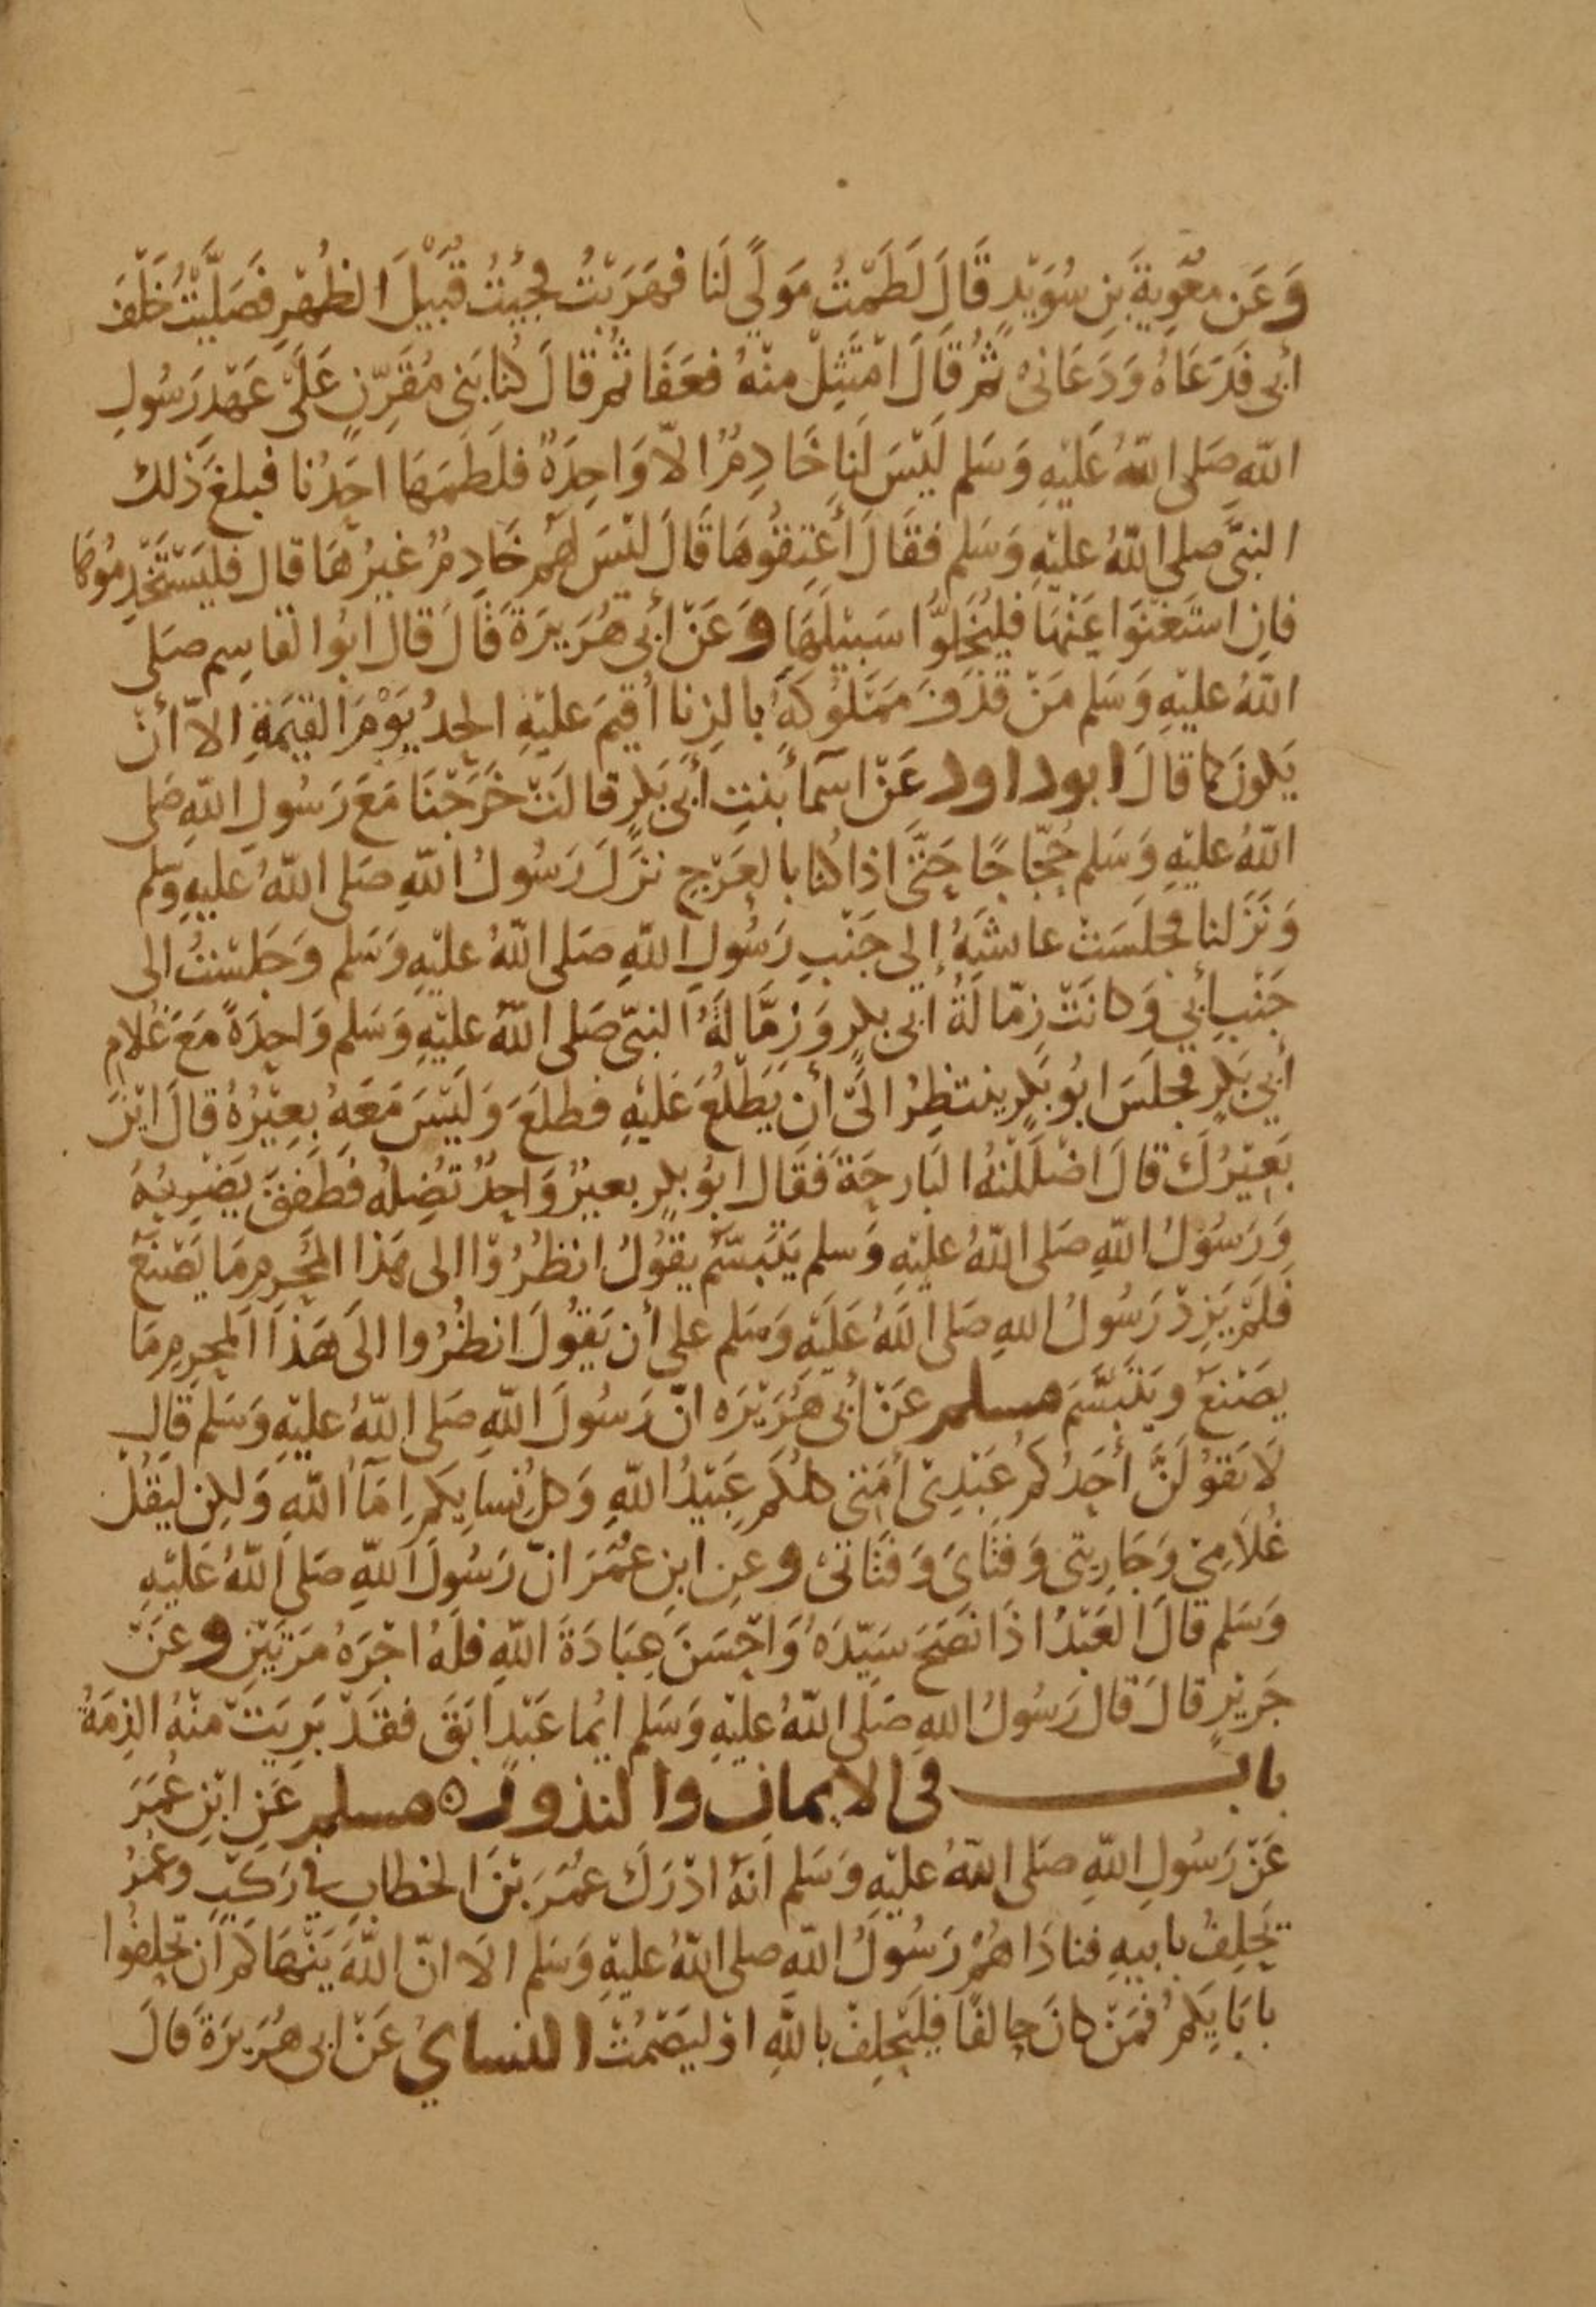 وَعَن مُعَوِيةَ بنِ سُوَيْدٍ قَالَ لَطَمْتُ مَوْلًى لَنَا فهَرَبْتُ فجِيْتُ قُبَيْلَ الظُهْرِ فَصَلَّيْتُ خَلْفَ
أبى فَدَعَاهُ وَدَعَانِى ثُمَّ قَالَ امْتَثِلْ مِنْهُ فعَفَا ثُمَّ قالَ كُنا بَنِى مُقَرِّنٍ عَلَى عَهْدِ رَسُولِ
اللهِ صَلى اللهُ عَلَيْهِ وَسَلم لَيْسَ لَنا خَادِمٌ الّا وَاحِدَةٌ فلَطَمَهَا احَدُنا فبلغَ ذَلك
النبىَّ صلى اللهُ عليْهِ وَسَلم فقَالَ أَعْتِقُوهَا قَالَ لَيْسَ لهُمْ خَادِمٌ غيْرُهَا قال فليَسْتَخْدِمُوهَا
فاِنِ اسْتَغْنَوا عَنْهَا فليُخَلوُّا سَبِيْلَهَا وَعَنْ أبى هُرَيرَةَ قَالَ قال ابُوا لقاسِم صَلى
اللهُ عليْهِ وَسَلم مَنْ قذَفَ مَمْلُوكَهُ بالزِنا أُقيمَ عليْهِ الحدُ يَوْمَ القيَمَةِ الاّ أنْ
يَكونَ كما قالَ ابوداود عَنْ اسَمآ بنتِ أبى بَكرٍ قالَتْ خَرَجْنَا مَعَ رَسُولِ اللهِ صَلى
اللهُ عليْهِ وَسَلم حُجّاجًا حَتَّى اذا كُنا بالعَرْجِ نزَلَ رَسُولُ اللهِ صَلى اللهُ عليهِ وَسَلم
وَنَزَلنا فجَلَسَتْ عايشَةُ إلى جَنْبِ رَسُولِ اللهِ صَلى اللهُ عليْهِ وَسَلم وَجَلسْتُ الى
جَنْبِ أبي وَكانَتْ زِمّالَةُ ابى بكرٍ وَزِمَّالَةُ النبىّ صَلى اللهُ عليْهِ وَسَلم وَاحِدَةً مَعَ غُلامِ
أبي بَكرٍ فجلَسَ ابُو بَكرٍ ينتظِرُ الىَّ أن يَطْلُعَ عَليْهِ فطلعَ وَليْسَ مَعَهُ بعِيْرُهُ قالَ ايْنَ
بَعِيْرُكَ قالَ اضْلَلْتُهُ البَارحَةَ فَقَال ابُو بكرٍ بعيرٌ وَاحِدٌ تُضِلهُ فَطَفِقَ يَضْرِبُهُ
وَرَسُوْلُ اللهِ صَلى اللهُ عليْهِ وَسلم يَتَبسَّمُ يقوُلُ انظرُوْا الى هَذا المُحْرِمِ مَا يَصْنَعُ
فَلَمْ يَزِدْ رَسُولُ اللهِ صَلى اللهُ عَلَيْهِ وَسَلم على أن يَقوُلَ انظُرُوا الَى هَذَا المُحرِمِ مَا
يصَنَعُ ويَتَبسَّمَ مسلم عَنْ أبى هُرَيْرَه انّ رَسُولَ اللهِ صَلى اللهُ عليْهِ وَسَلم قالَ
لَا يَقوُلَنَّ أحَدُكُم عَبْدِى أَمَتى كلكُم عَبيْدُ اللهِ وَكل نُسايِكُم إمَآ اللهِ وَلكِن ليَقُلْ
غُلَامِيْ وَجَارِيتى وَفتَاىَ وَفتَاتىْ وعنِ ابنِ عُمَرَ انّ رَسُولَ اللهِ صَلى اللهُ عَليْهِ
وَسَلم قالَ العَبْدُ اذَا نَصَحَ سَيّدَهُ وَاحْسَنَ عِبَادَةَ اللهِ فلَهُ اجْرَهُ مَرَتَيْنِ وعَنْ
جَريْرٍ قالَ قال رَسُولُ اللهِ صَلَى اللهُ عليْهِ وَسَلم ايُما عَبْدٍ ابَقَ فقَدْ بَرِيَتْ منْهُ الذِمَةُ
باب فى الايمان والنذور ه مسلم عَنِ ابْنِ عُمَرَ
عَنْ رَسُولِ اللهِ صَلى اللهُ عليْهِ وَسَلم اَنهُ ادْرَكَ عمَرَ بْنَ الخطابِ في رَكبٍ وعُمَرُ
يَحْلِفُ بابيهِ فنادَاهُمْ رَسُولُ اللهِ صلى اللهُ عليْهِ وَسَلم الَا انّ اللهَ يَنْهَاكُم أن تحلِفُوا
بابَايِكُمْ فمَنْ كانَ حالفًا فليَحْلِفْ باللهِ اوْ ليَصْمُتْ النساي عَنْ ابى هُرَيرَةَ قالَ